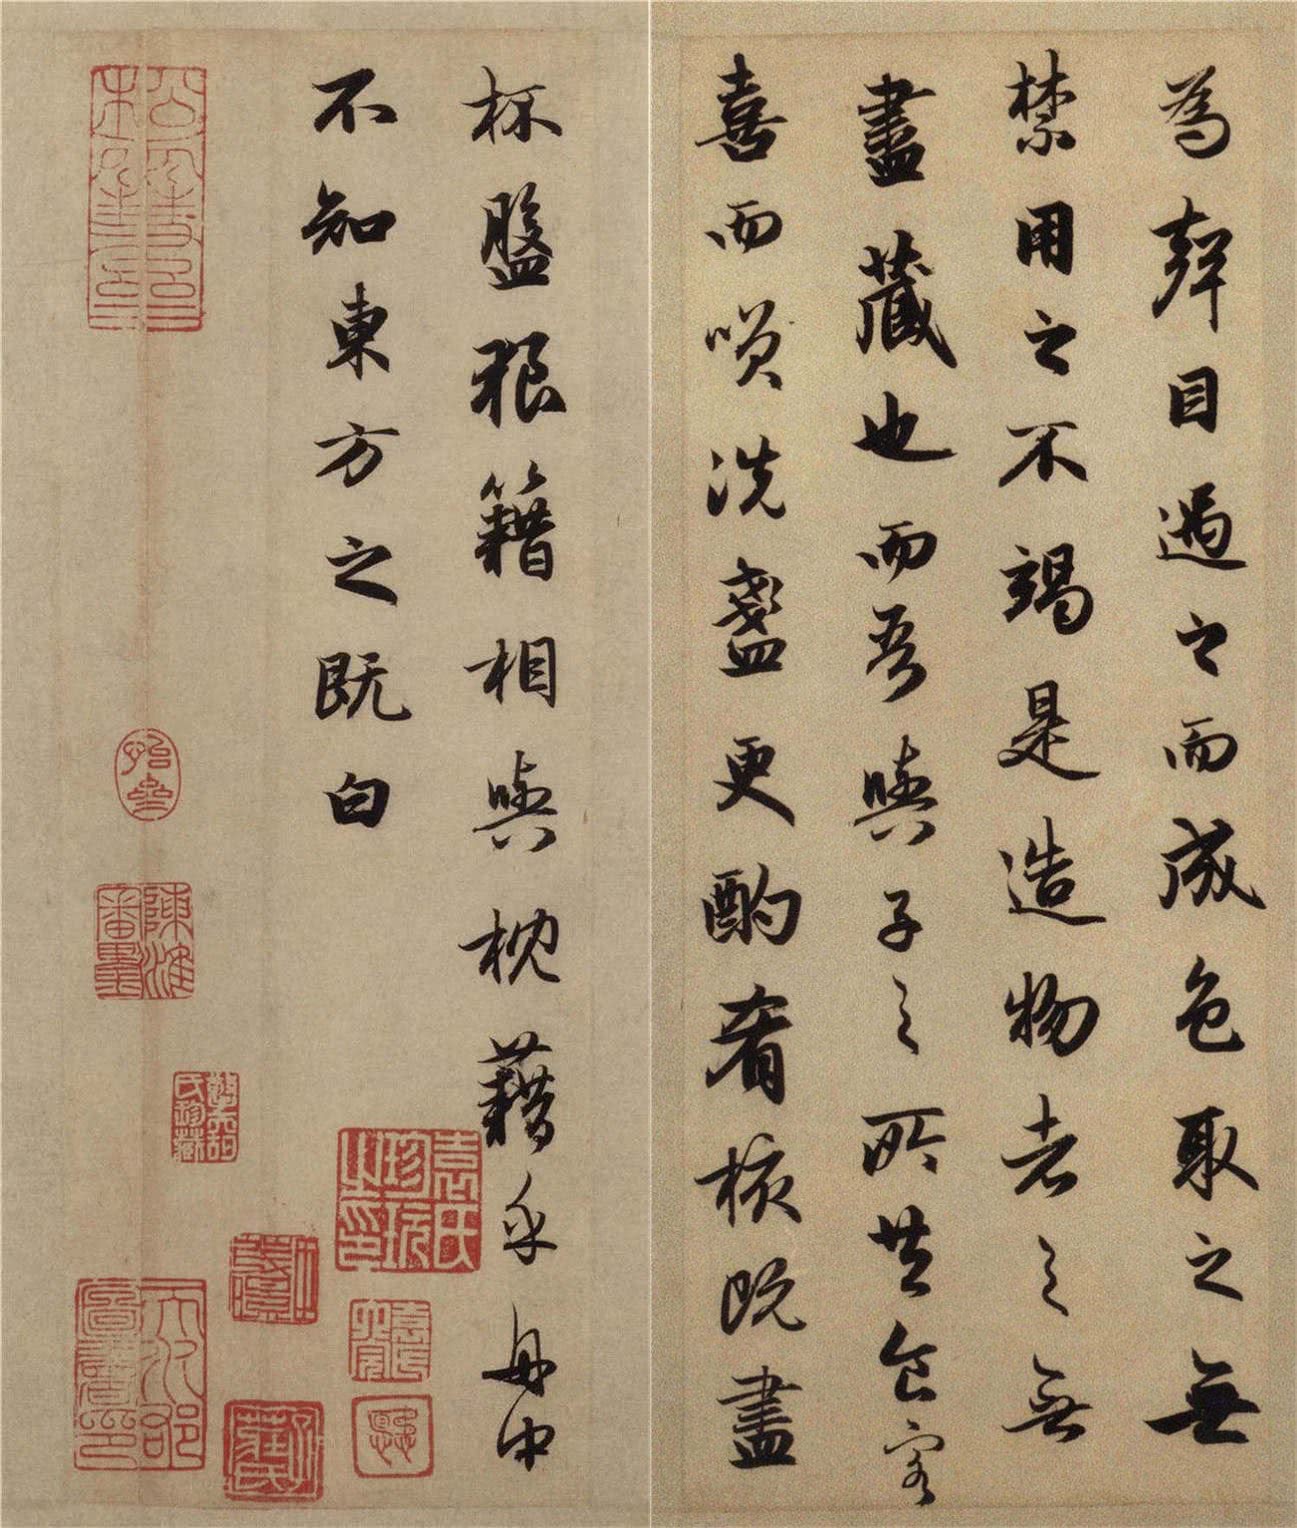 為聲目遇之而成色取之無
禁用之不竭是造物者之無
盡藏也而吾與子之所共食客
喜而笑洗盞更酌肴核既盡
杯盤狼籍相與枕藉乎舟中
不知東方之既白
袁氏珍玩之印